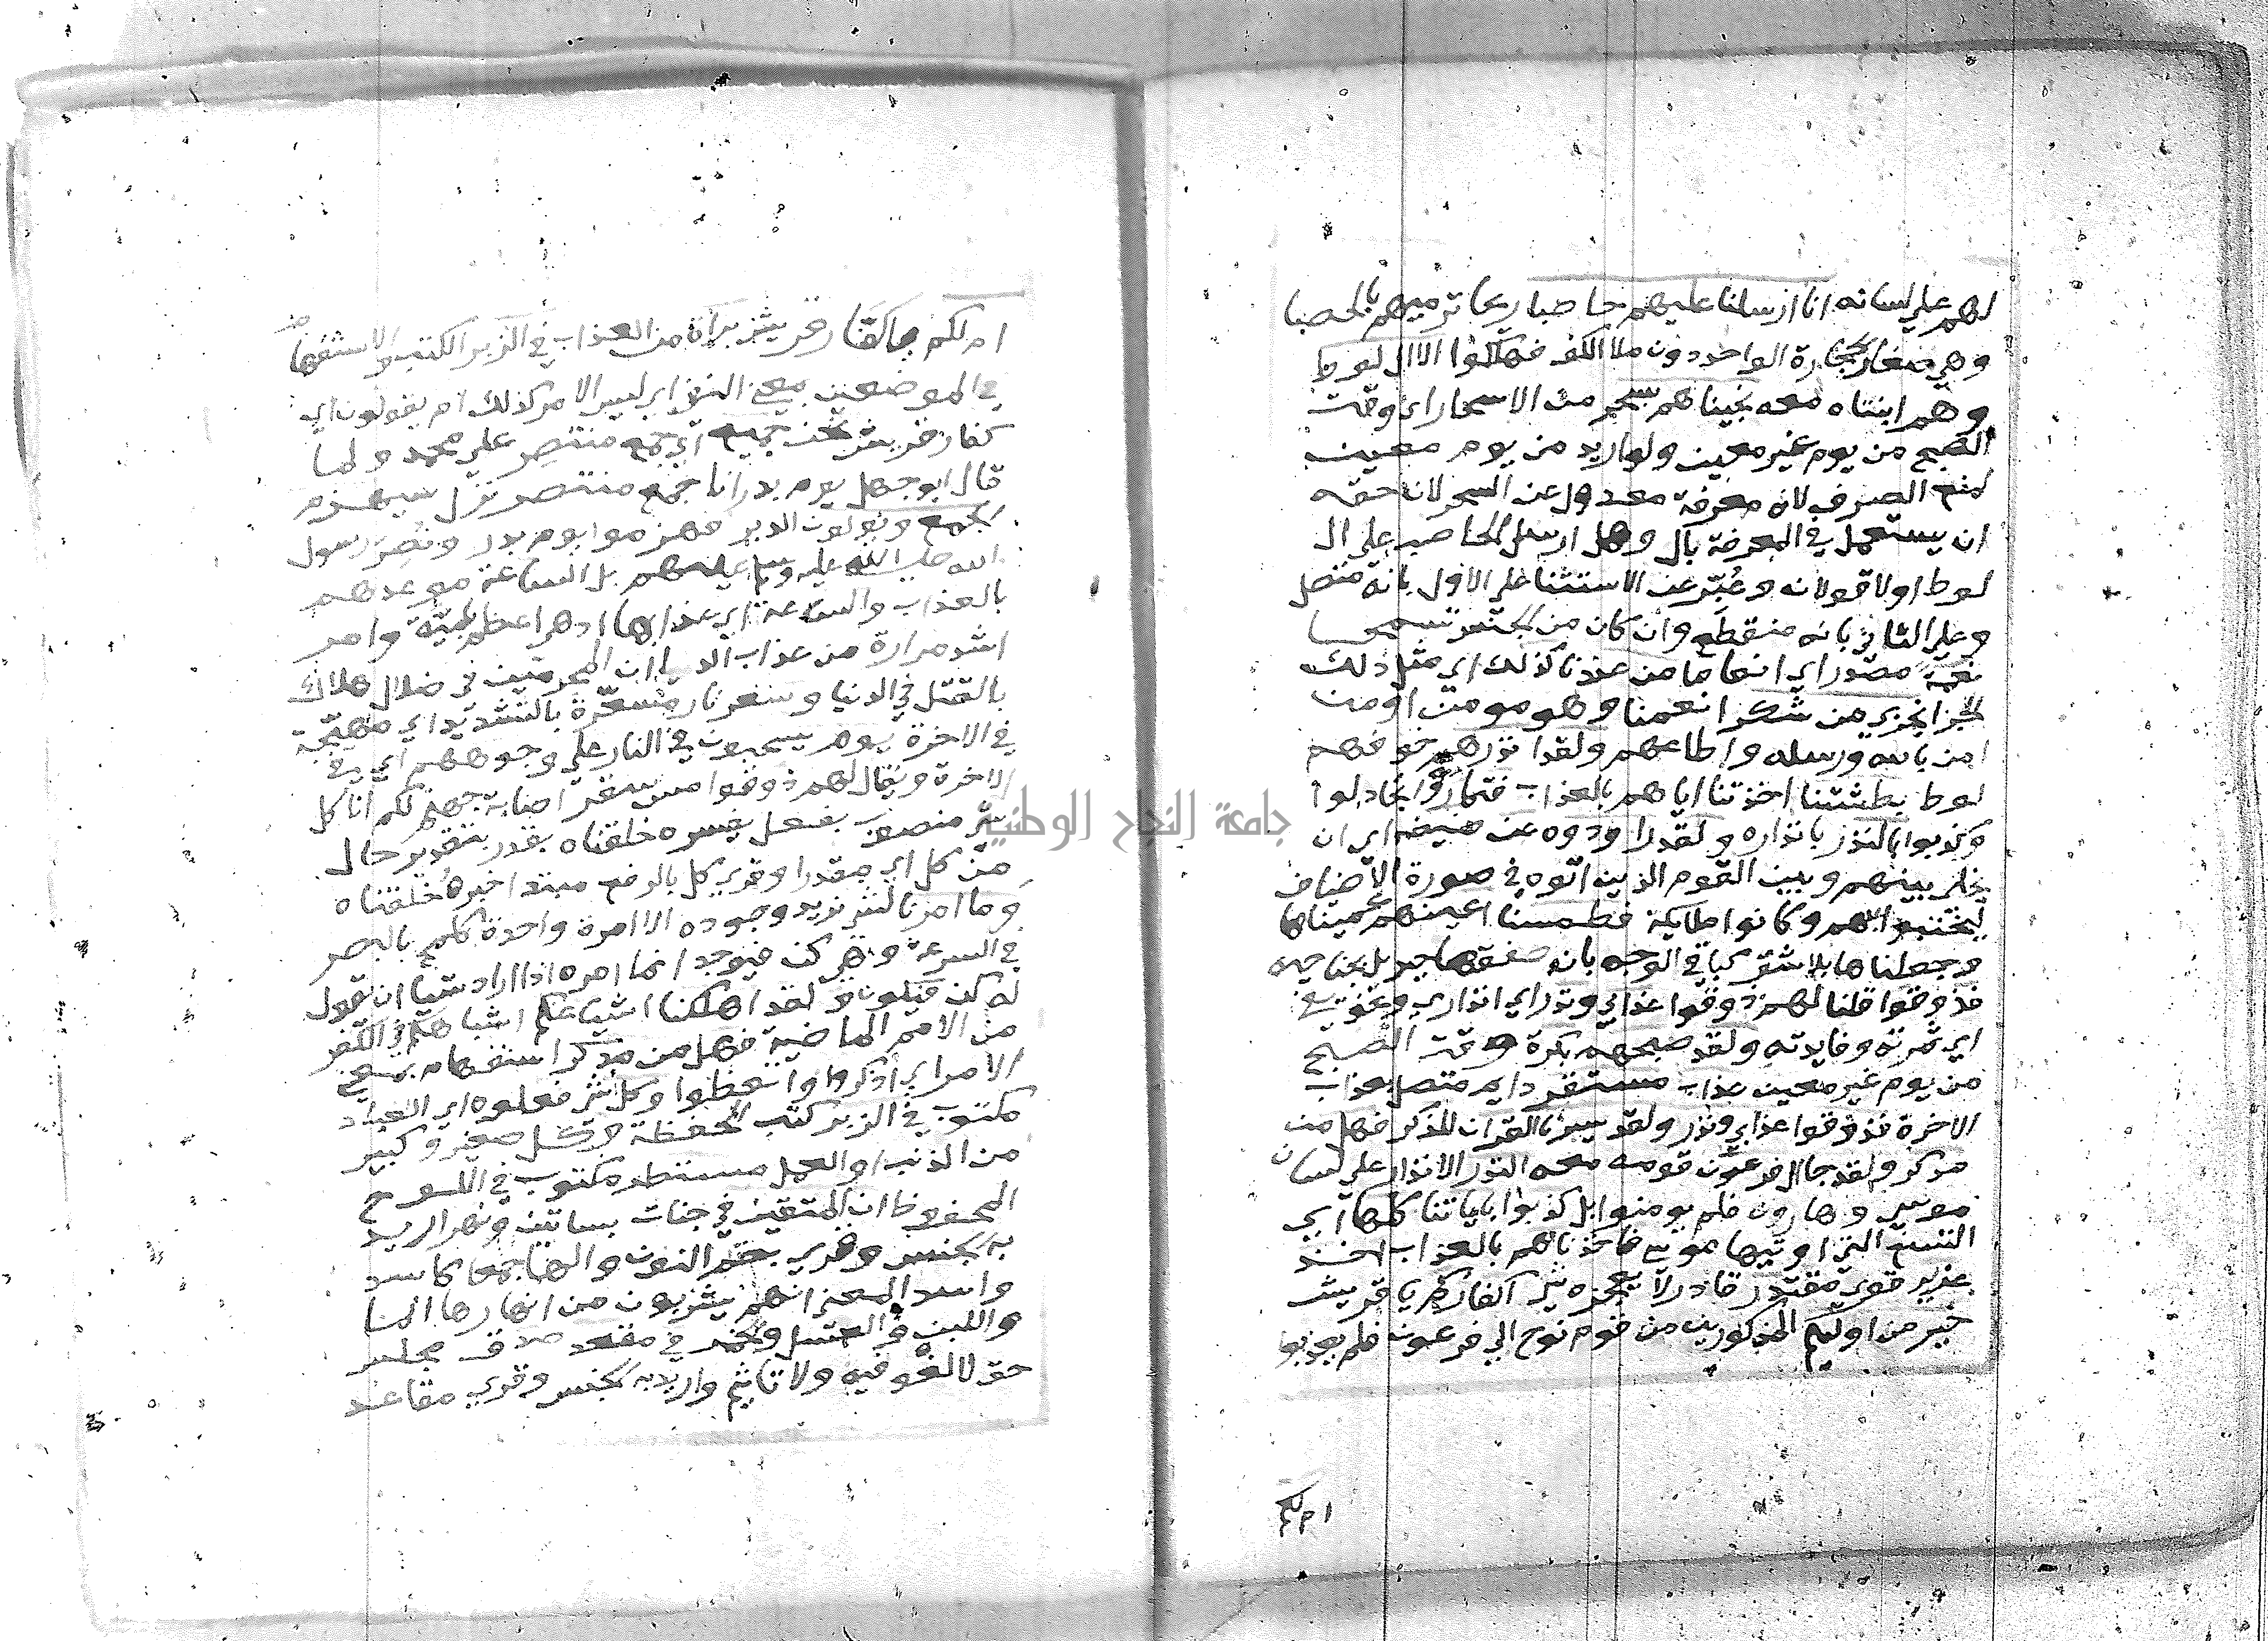 لهم علي لسانه انا ارسلنا عليهم حاصبا ريحا ترميهم بالحصبا
وهي صغار الحجارة الواحد دون ملا الكف فهلكوا الا ال لوط
وهم ابنتاه معه نجيناهم بسحر من الاسحار اي وقت
الصبح من يوم غير معين ولو اريد من يوم معين
لمنع الصرف لانه معرفة معدول عن السحر لان حقه
ان يستعمل في المعرفة بال وهل ارسل الحاصب علي ال
لوط اولا قولان وعُبّر عن الاستثنا علي الاول بانه متصل
وعلي الثاني بانه منقطع وان كان من الجنس تسمحا
نعمة مصدر اي انعاما من عندنا كذلك اي مثل ذلك
الجزا نجزي من شكر انعمنا وهو مومن او من
امن بالله ورسله واطاعهم ولقد انذرهم خوفهم
لوط بطشتنا اخذتنا اياهم بالعذاب فتماروا تجادلوا
وكذبوا بالنذر بانذاره ولقد راودوه عن ضيفه اي ان
يخلي بينهم وبين القوم الذين اتوه في صورة الاضياف
ليخبثوا بهم وكانوا ملايكة فطمسنا اعينهم عميناها
وجعلناها بلا شق كباقي الوجه بان صفقها جبريل بجناحيه
فذوقوا قلنا لهم ذوقوا عذابي ونذر اي انذاري وتخويفي
اي ثمرته وفايدته ولقد صبحهم بكرة وقت الصبح
من يوم غير معين عذاب مستقر دايم متصل بعذاب
الاخرة فذوقوا عذابي ونذر ولقد يسرنا القران للذكر فهل من
مدكر ولقد جا ال فرعون قومه معه النذر الانذار علي لسان
موسي وهارون فلم يومنوا بل كذبوا باياتنا كلها اي
التسع التي اوتيها موسي فاخذناهم بالعذاب اخذ
عزيز قوي مقتدر قادر لا يعجزه شي اكفاركم يا قريش
خير من اوليكم المذكورين من قوم نوح الي فرعون فلم يعذبوا
ام لكم
ام لكم يا كفار قريش براة من العذاب في الزبر الكتب والاستفهام
في الموضعين بمعني النفي اي ليس الامر كذلك ام يقولون اي
كفار قريش نحن جميع اي جمع منتصر علي محمد ولما
قال ابو جهل يوم بدر انا جمع منتصر نزل سيهزم
الجمع ويولون الدبر فهزموا يوم بدر ونُصِرَ رسول
الله صلي الله عليه وسلم عليهم بل الساعة موعدهم
بالعذاب والساعة اي عذابها ادهي اعظم بلية وامر
اشد مرارة من عذاب الدنيا ان المجرمين في ضلال هلاك
بالقتل في الدنيا وسعر نار مسعّرة بالتشديد اي مهيجة
في الاخرة يوم يسحبون في النار علي وجوههم اي في
الاخرة ويقال لهم ذوقوا مس سقر اصابة جهنم لكم انا كل
شي منصوب بفعل يفسره خلقناه بقدر بتقدير حال
من كل اي مقدرا وقري كل بالرفع مبتدا خبره خلقناه
وما امرنا لشي نريد وجوده الا امرة واحدة كلمح بالبصر
في السرعة وهي كن فيوجد انما امره اذا اراد شيا ان يقول
له كن فيكون ولقد اهلكنا اشياعكم اشباهكم في الكفر
من الامم الماضية فهل من مدكر استفهام بمعني
الامر اي اذكروا واتعظوا وكل شي فعلوه اي العباد
مكتوب في الزبر كتب الحفظة وكل صغير وكبير
من الذنب او العمل مستطر مكتوب في اللوح
المحفوظ ان المتقين في جنات بساتين ونهر اريد
به الجنس وقري بضم النون والها جمعا كاسد
واسد المعني انهم يشربون من انهارها الما
واللبن والعسل والخمر في مقعد صدق مجلس
حق لا لغو فيه ولا تاثيم واريد به الجنس وقري مقاعد
جامعة النجاح الوطنية